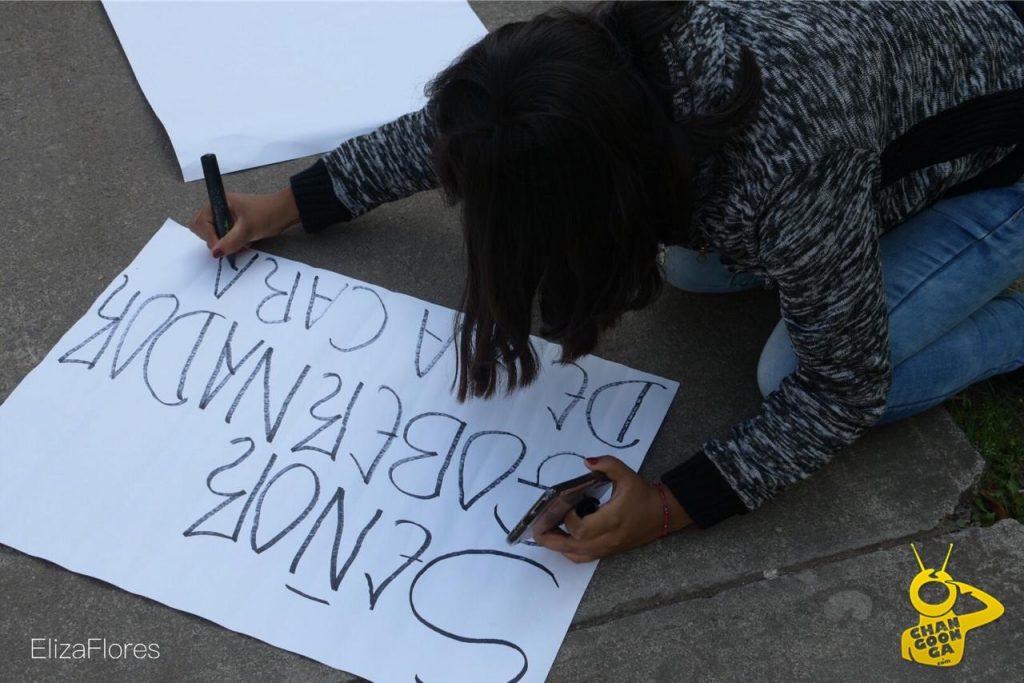 SEÑOR
GOBERNADOR
DE LA CARA
ElizaFlores
CHAN
GOON
GA
.com